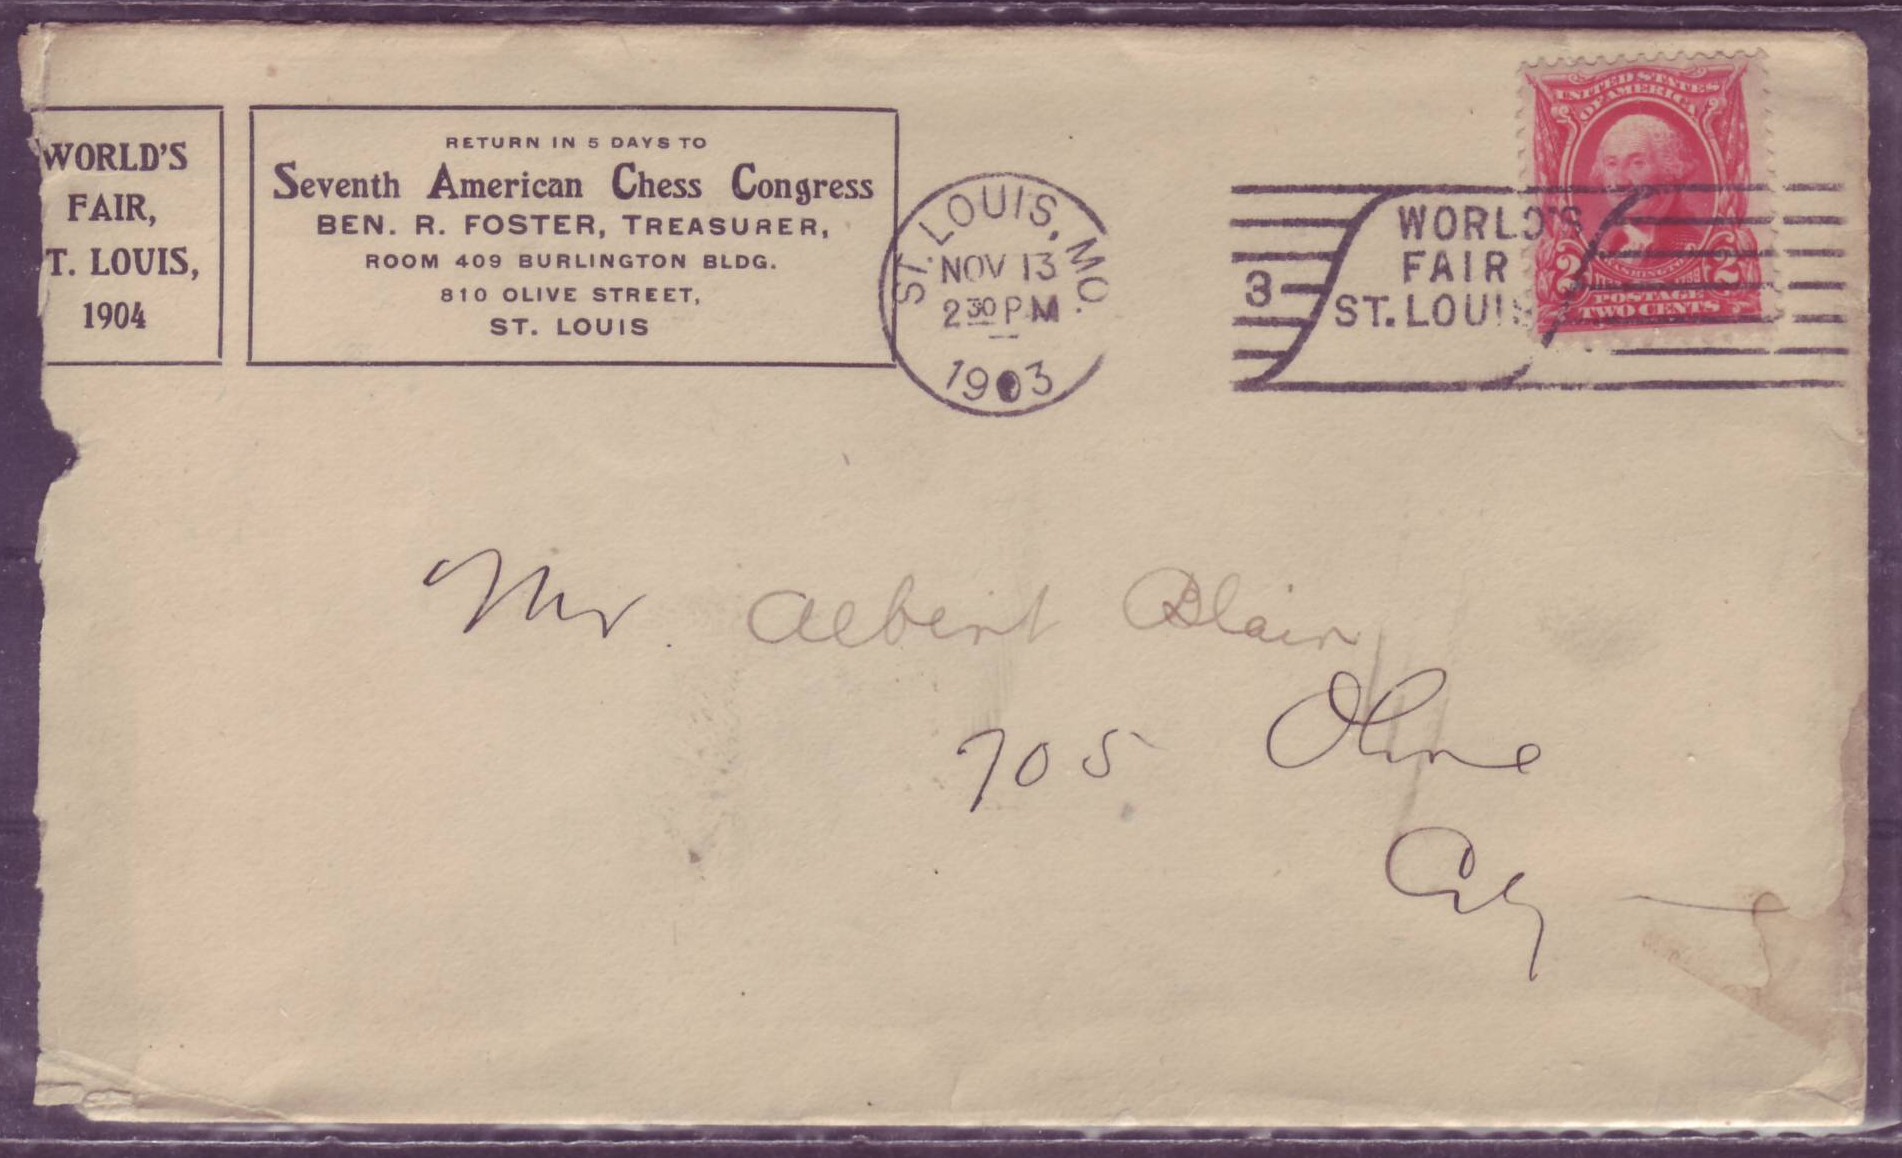 WORLD'S
FAIR,
T. LOUIS,
1904
RETURN IN 5 DAYS TO
Seventh American Chess Congress
BEN. R. FOSTER, TREASURER,
ROOM 409 BURLINGTON BLDG.
810 OLIVE STREET,
ST. LOUIS
ST. LOUIS, MO.
NOV 13
2 30 P M
1903
3
WORLD'S
FAIR
ST. LOUIS
UNITED STATES
OF AMERICA
WASHINGTON
2 2
POSTAGE
TWO CENTS
Mr. Albert Blair
705 Olive
City